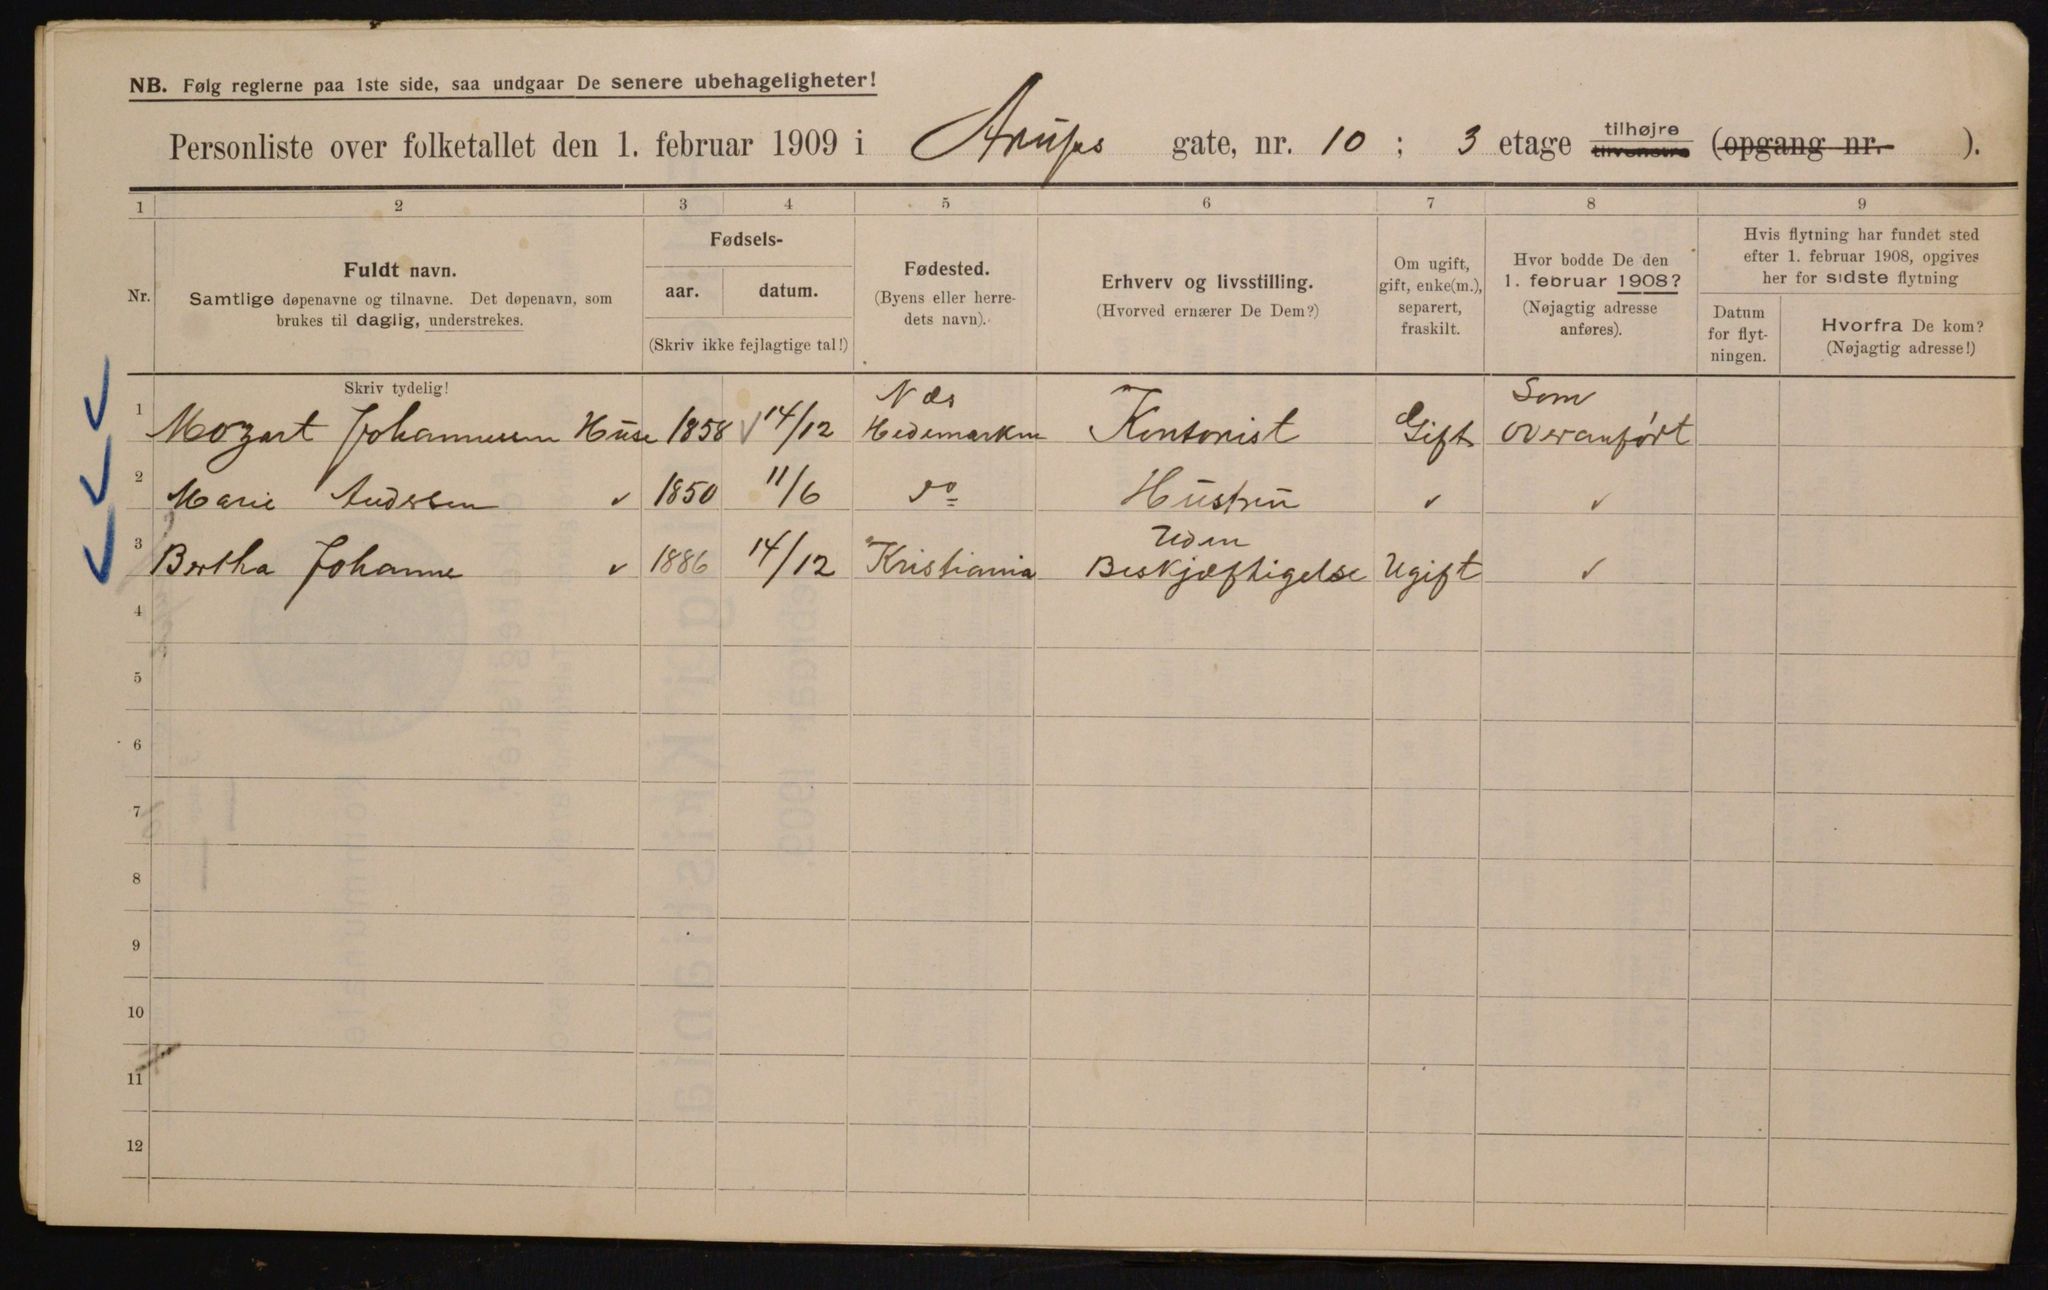 NB. Følg reglerne paa 1ste side, saa undgaar De senere ubehageligheter!
Personliste over folketallet den 1. februar 1909 i Arups gate, nr. 10 ; 3 etage tilhøjre tilvenstre (opgang nr. ).
1 2 3 4 5 6 7 8 9
Nr.
Fuldt navn.
Samtlige døpenavne og tilnavne. Det døpenavn, som
brukes til daglig, understrekes.
Fødsels-
aar. datum.
(Skriv ikke fejlagtige tal!)
Fødested.
(Byens eller herre-
dets navn).
Erhverv og livsstilling.
(Hvorved ernærer De Dem?)
Om ugift,
gift, enke(m.),
separert,
fraskilt.
Hvor bodde De den
1. februar 1908?
(Nøjagtig adresse
anføres).
Hvis flytning har fundet sted
efter 1. februar 1908, opgives
her for sidste flytning
Datum
for flyt-
ningen.
Hvorfra De kom?
(Nøjagtig adresse!)
Skriv tydelig!
1 Mozart Johannessen Huse 1858 14/12 Næs Hedemarken Kontorist Gift Som overanført
2 Marie Andersen ✓ 1850 11/6 do Hustru ✓ ✓
3 Bertha Johanne ✓ 1886 14/12 Kristiania Uden Beskjæftigelse Ugift ✓
4
5
6
7
8
9
10
11
12